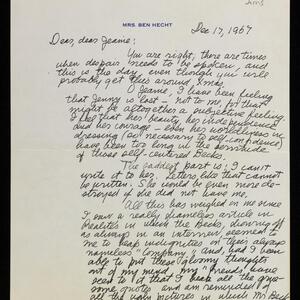 MRS. BEN HECHT
Dec 17, 1967
Dear, dear Jeanne:
You are right, there are times
when despair needs to be spoken, and
this is the day, even though you will
probably get this around Xmas.
O Jeanne, I have been feeling
that Jenny is lost - not to me, for that
might be altogether a subjective feeling.
I feel that her beauty, her independence
and her courage - even her worldliness in
dressing (so necessary to self-confidence)
have been too long in the
of those self-centered Becks.
The saddest part is, I can't
write it to her. Letters like that cannot
be written. She would be even more de-
stroyed if she did not have me.
All this has weighed on me since
I saw a really shameless article in
Realités in which the Becks, showing off
as always in an interview, seemed to
me to heap indignities on their always
nameless "Company" and, was I been
able to put these gloomy thoughts
out of my mind, my "friends" have
seen to it that I hear all the
some quotes and am reminded of
all the ugly pictures in which Mr Beck